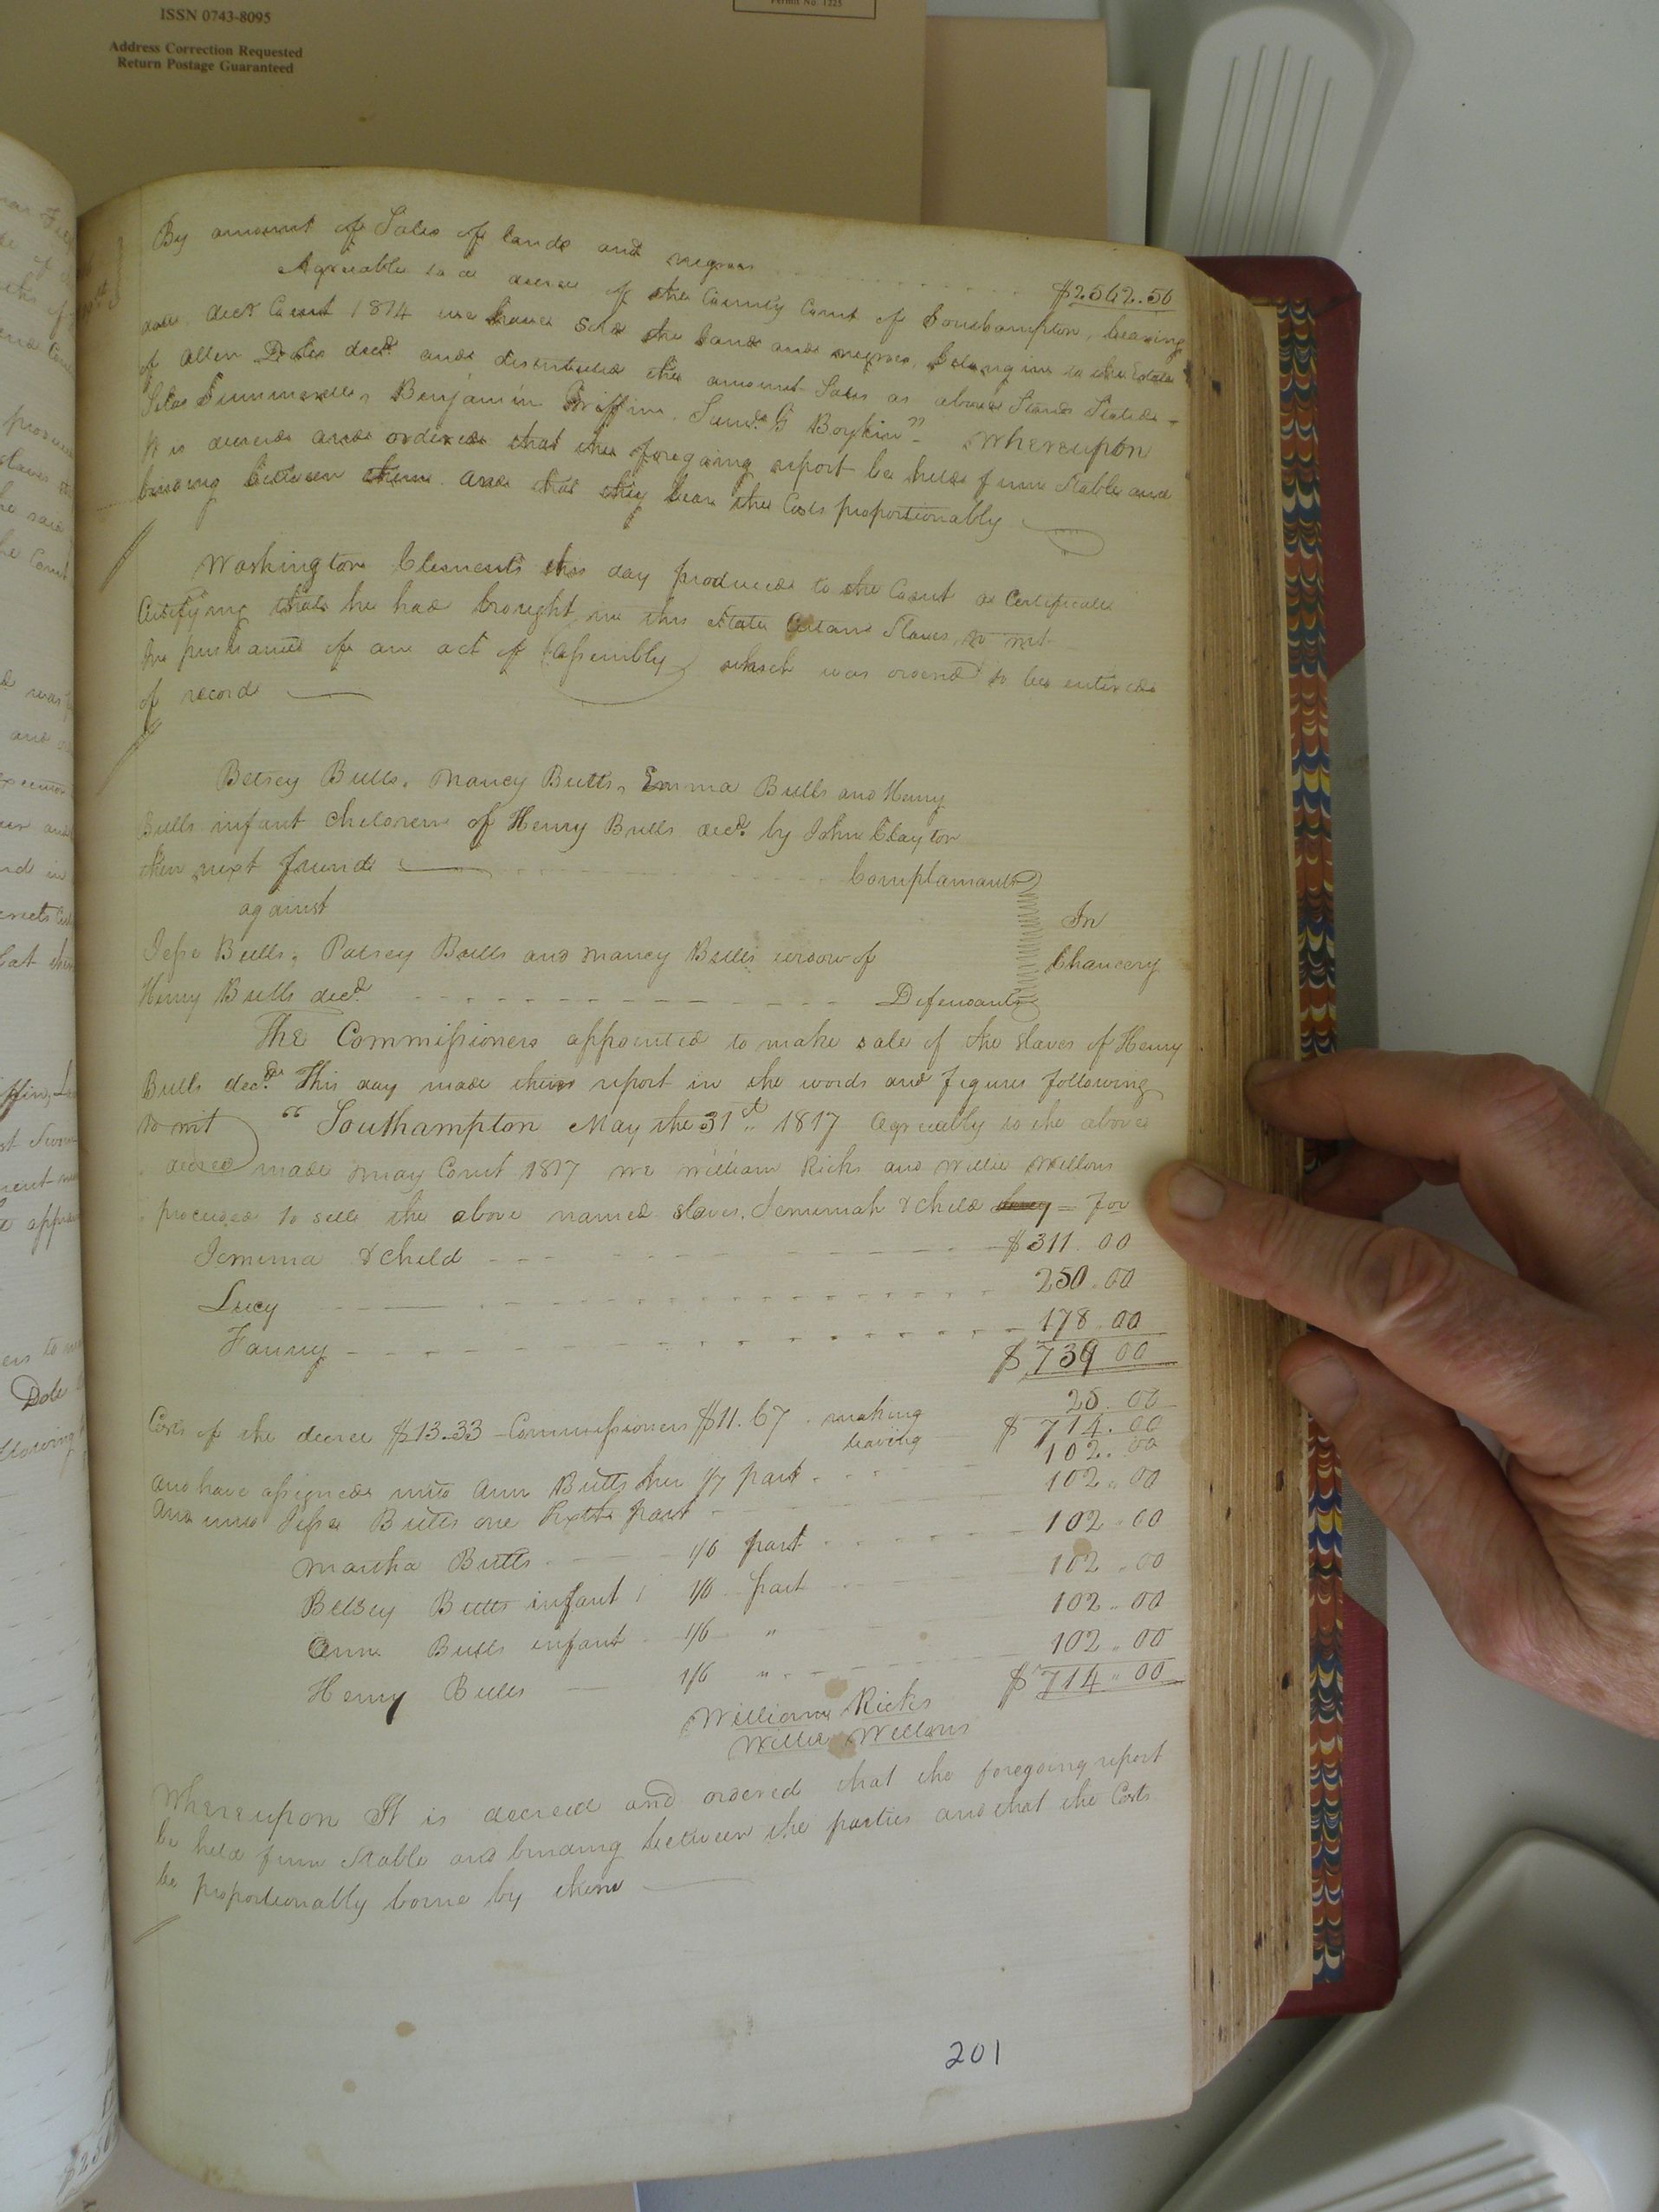 ISSN 0743-8095
Permit No. 1225
Address Correction Requested
Return Postage Guaranteed
By amount of Sales of lands and negroes $2562.50
Agreeable to a decree of the County Court of Southampton, bearing
date Decr Court 1814 we have Sold the land and negroes, belonging to the Estate
of Allen Doles decd. and distributed the amount Sales as above Stands Stated -
Silas Summerell, Benjamin Griffin, G Boykin" Whereupon
It is decreed and ordered that the foregoing report be held firm Stable and
binding between them and that they bear the Costs proportionably
Washington Clements this day produced to the Court a Certificate
Certifying that he had brought in this State Certain Slaves, to wit
In pursuance of an act of Assembly which was ordered to be entered
of record
Betsey Butts, Nancy Butts, Emma Butts and Henry
Butts infant children of Henry Butts decd. by John Clayton
their next friend Complainants
against
In
Jesse Butts, Patsey Butts and Nancy Butts widow of
Chancery
Henry Butts decd. Defendants
The Commissioners appointed to make sale of the slaves of Henry
Butts decd. This day made their report in the words and figures following
to wit " Southampton May the 31st 1817 Agreeably to the above
decree made May Court 1817 we William Ricks and Willie Wellons
proceeded to sell the above named slaves, Jemimah & child = for
Jemima & child $311.00
Lucy 250.00
Fanny 178.00
$739 00
25.00
Costs of the decree $13.33 - Commissioners $11.67 making
leaving $714.00
and have assigned unto Ann Butts her 1/7 part 102.00
And unto Jesse Butts one Sixth part 102.00
Martha Butts 1/6 part 102.00
Betsey Butts infant 1/6 part 102.00
Ann Butts infant 1/6 " 102.00
Henry Butts 1/6 " 102.00
$714.00
William Ricks
Willie Wellons
Whereupon It is decreed and ordered that the foregoing report
be held firm Stable and binding between the parties and that the Costs
be proportionably borne by them
201